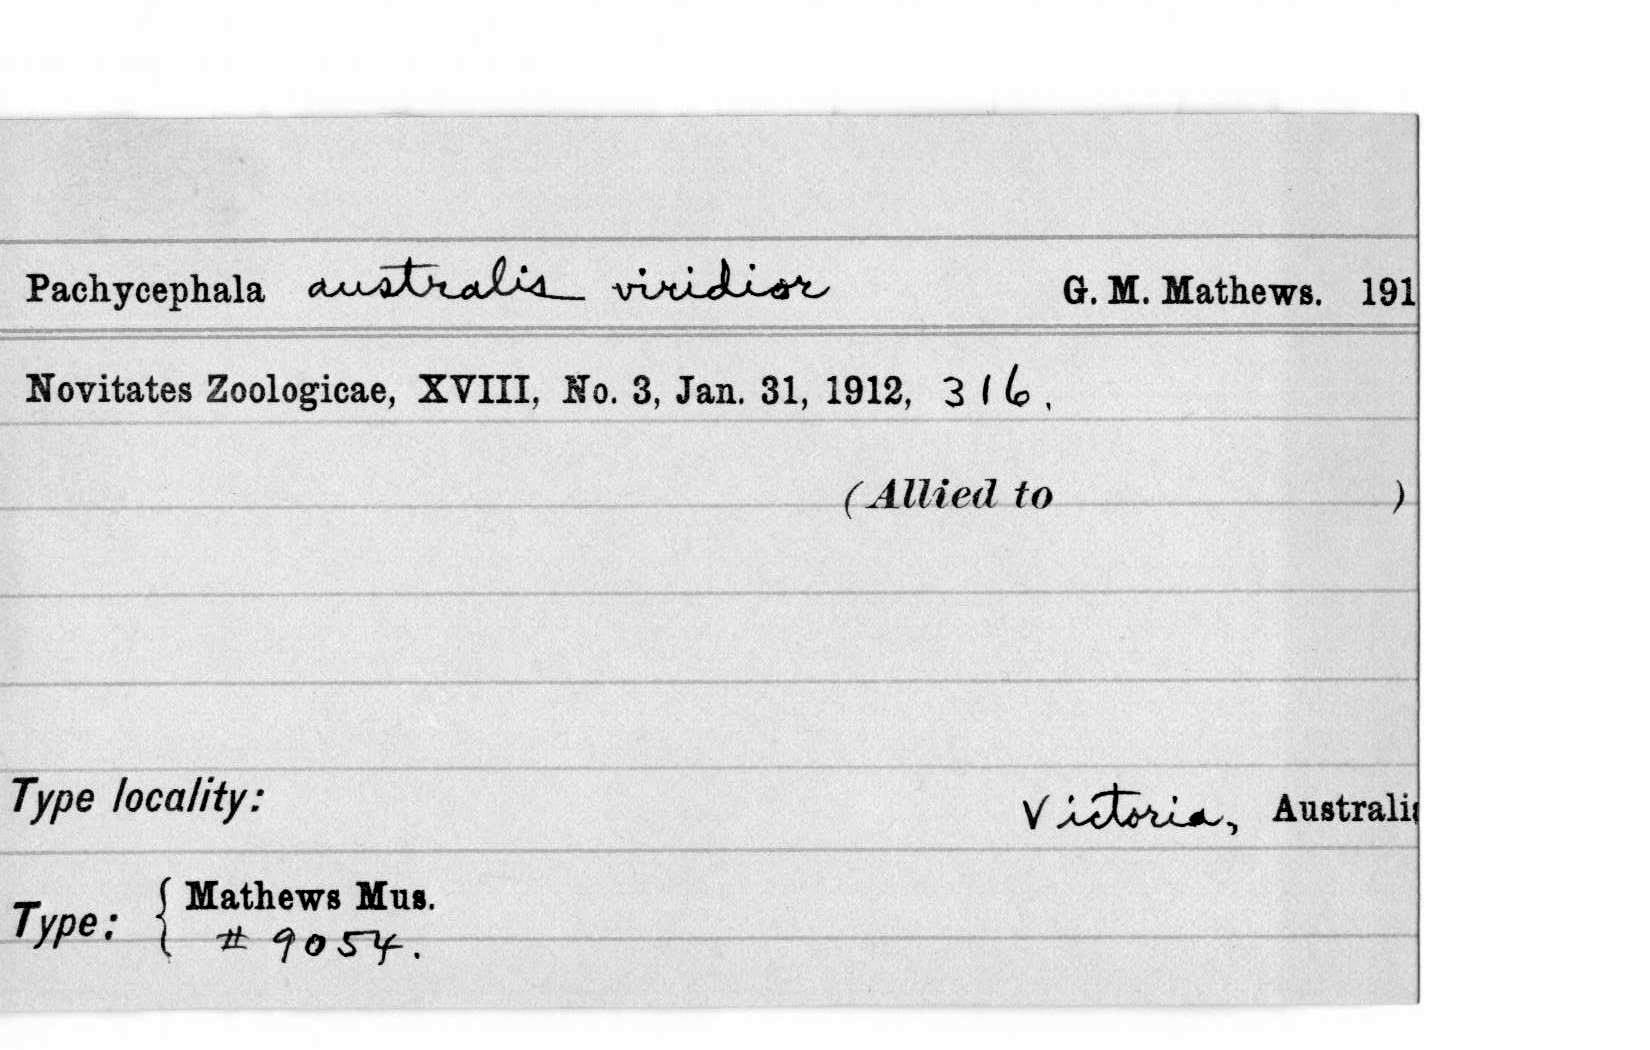 Pachycephala australis viridior G. M. Mathews. 191
Novitates Zoologicae, XVIII, No. 3, Jan. 31, 1912, 316.
(Allied to )
Type locality: Victoria, Australia
Type: { Mathews Mus.
# 9054.